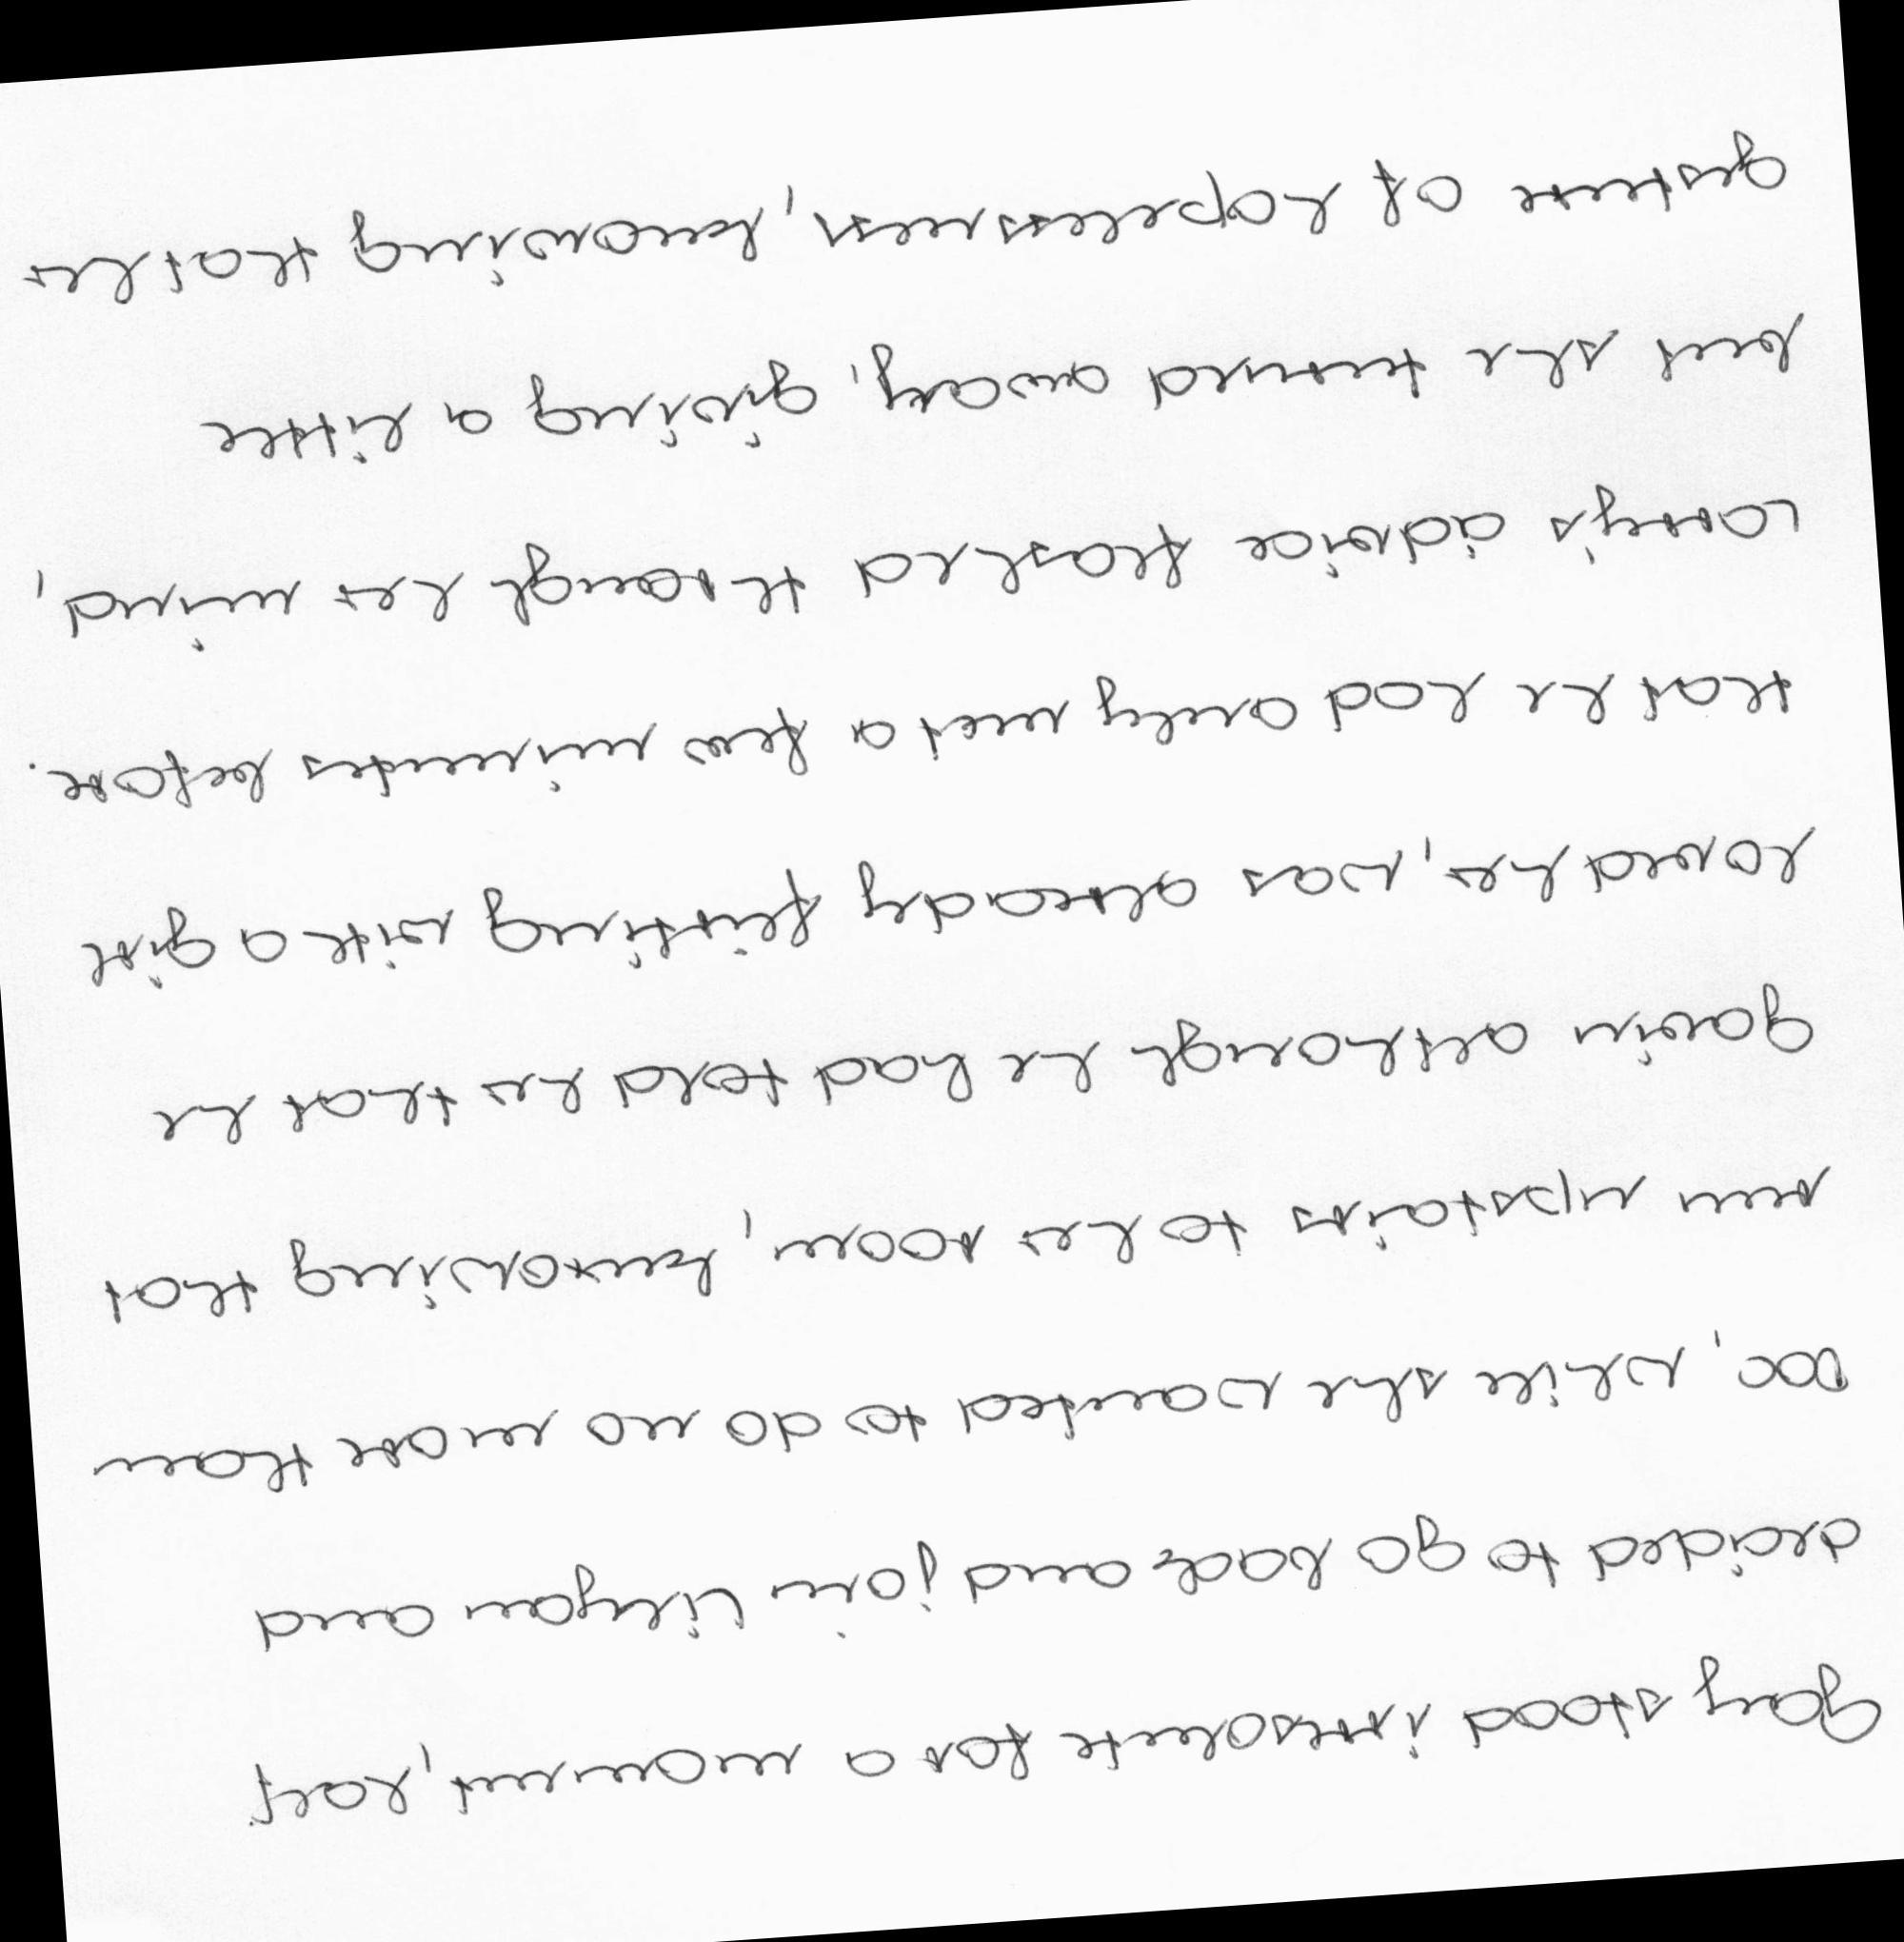 gay stood irresolute for a moment, half
decided to go back and join lilyan and
Doc, while she wanted to do no more than
run upstairs to her room, knowing that
gavin although he had told her that he
loved her, was already flirting with a girl
that he had only met a few minutes before.
Corry's advice flashed through her mind,
but she turned away, giving a little
gesture of hopelessness, knowing that her